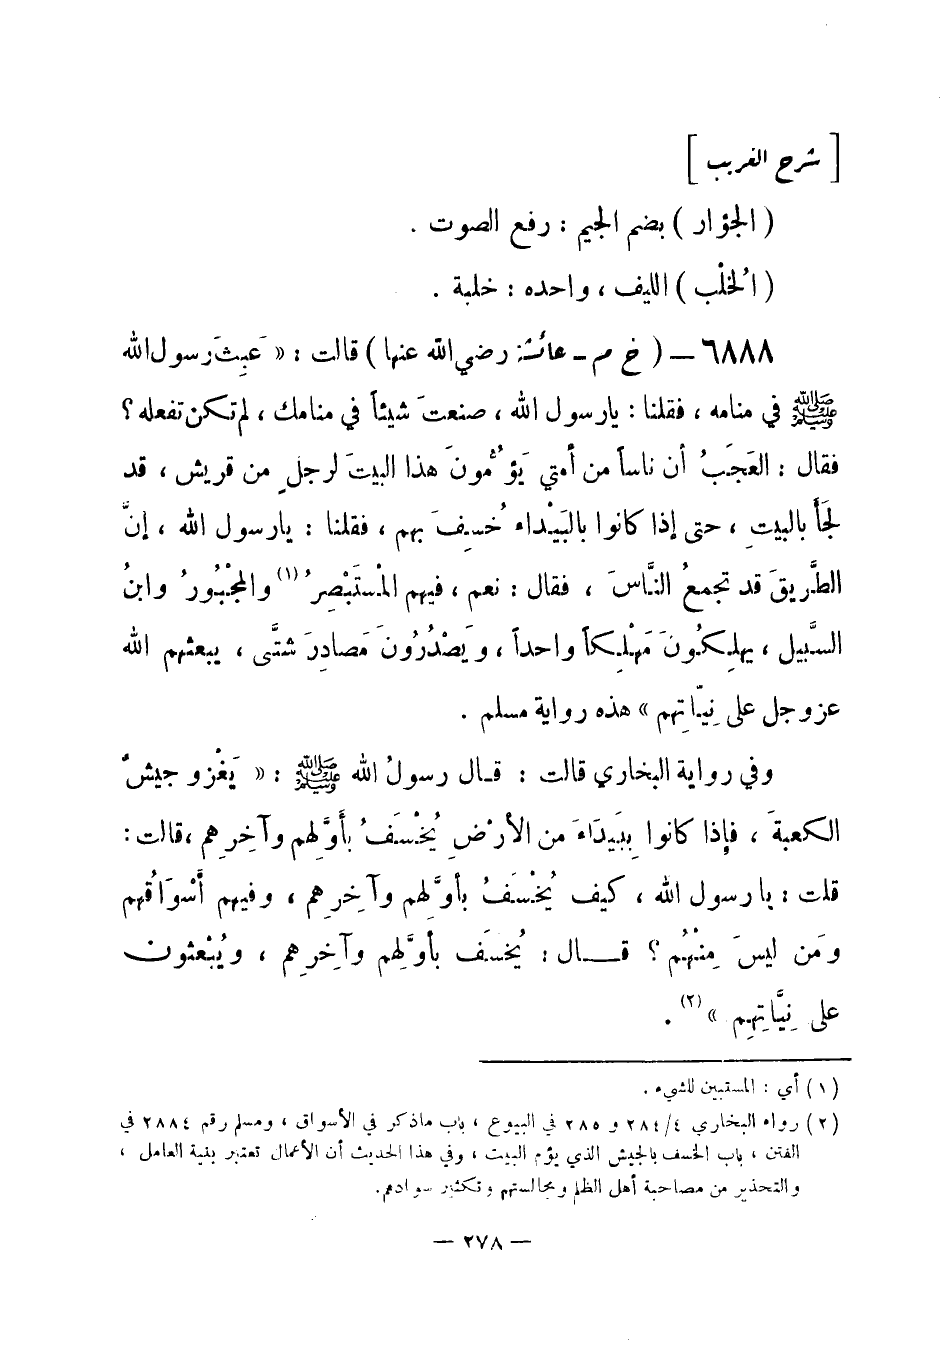 [ شرح الغريب ]
( الجؤار ) بضم الجيم : رفع الصوت .
( الخُلْب ) الليف ، واحده : خلبة .
٦٨٨٨ – ( خ م – عائشة رضي الله عنها ) قالت : « عَبِثَ رسول الله
ﷺ في منامه ، فقلنا : يارسول الله ، صنعتَ شيئاً في منامك ، لم تكن تفعله ؟
فقال : العَجَبُ أن ناساً من أمتي يَؤُمُّونَ هذا البيتَ لرجلٍ من قريش ، قد
لجَأَ بالبيتِ ، حتى إذا كانوا بالبَيْداء خُسِفَ بهم ، فقلنا : يارسول الله ، إنَّ
الطَّريقَ قد تجمعُ النَّاسَ ، فقال : نعم ، فيهم المْستَبْصِرُ (١) والمجْبُورُ وابنُ
السَّبيل ، يهلِكُونَ مَهْلِكاً واحداً ، ويَصْدُرُونَ مَصادِرَ شتَّى ، يبعثهم الله
عز وجل على نِيَّاتِهم » هذه رواية مسلم .
وفي رواية البخاري قالت : قال رسولُ الله ﷺ : « يَغْزو جيشٌ
الكعبةَ ، فإذا كانوا بِبَيدَاءَ من الأرْضِ يُخْسَفُ بأَوَّلِهم وآخِرِهم ، قالت :
قلت : يا رسول الله ، كيف يُخْسَفُ بأوَّلِهم وآخِرِهم ، وفيهم أَسْوَاقُهم
ومَن ليسَ مِنْهُم ؟ قـــال : يُخسَف بأوَّلِهم وآخِرِهم ، ويُبْعثون
على نِيَّاتِهِم » (٢) .
(١) أي : المستبين للشيء .
(٢) رواه البخاري ٤/ ٢٨٤ و ٢٨٥ في البيوع ، باب ماذكر في الأسواق ، ومسلم رقم ٢٨٨٤ في
الفتن ، باب الخسف بالجيش الذي يؤم البيت ، وفي هذا الحديث أن الأعمال تعتبر بنية العامل ،
والتحذير من مصاحبة أهل الظلم ومجالستهم وتكثير سوادهم.
— ٢٧٨ —